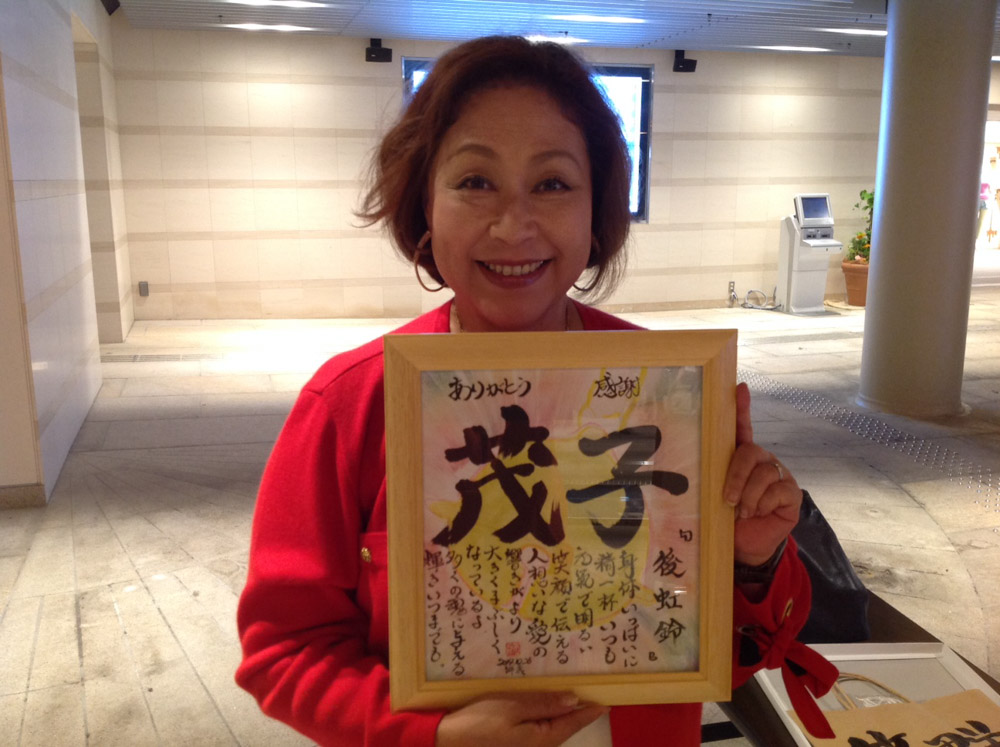 ありがとう
感謝
茂子
身体いっぱいに
精一杯いつも
元気で明るい
笑顔で伝える
人想いな愛の
響きがより
大きくまぶしく
なっているよ
多くの魂に与える
輝きいつまでも
後虹鈴